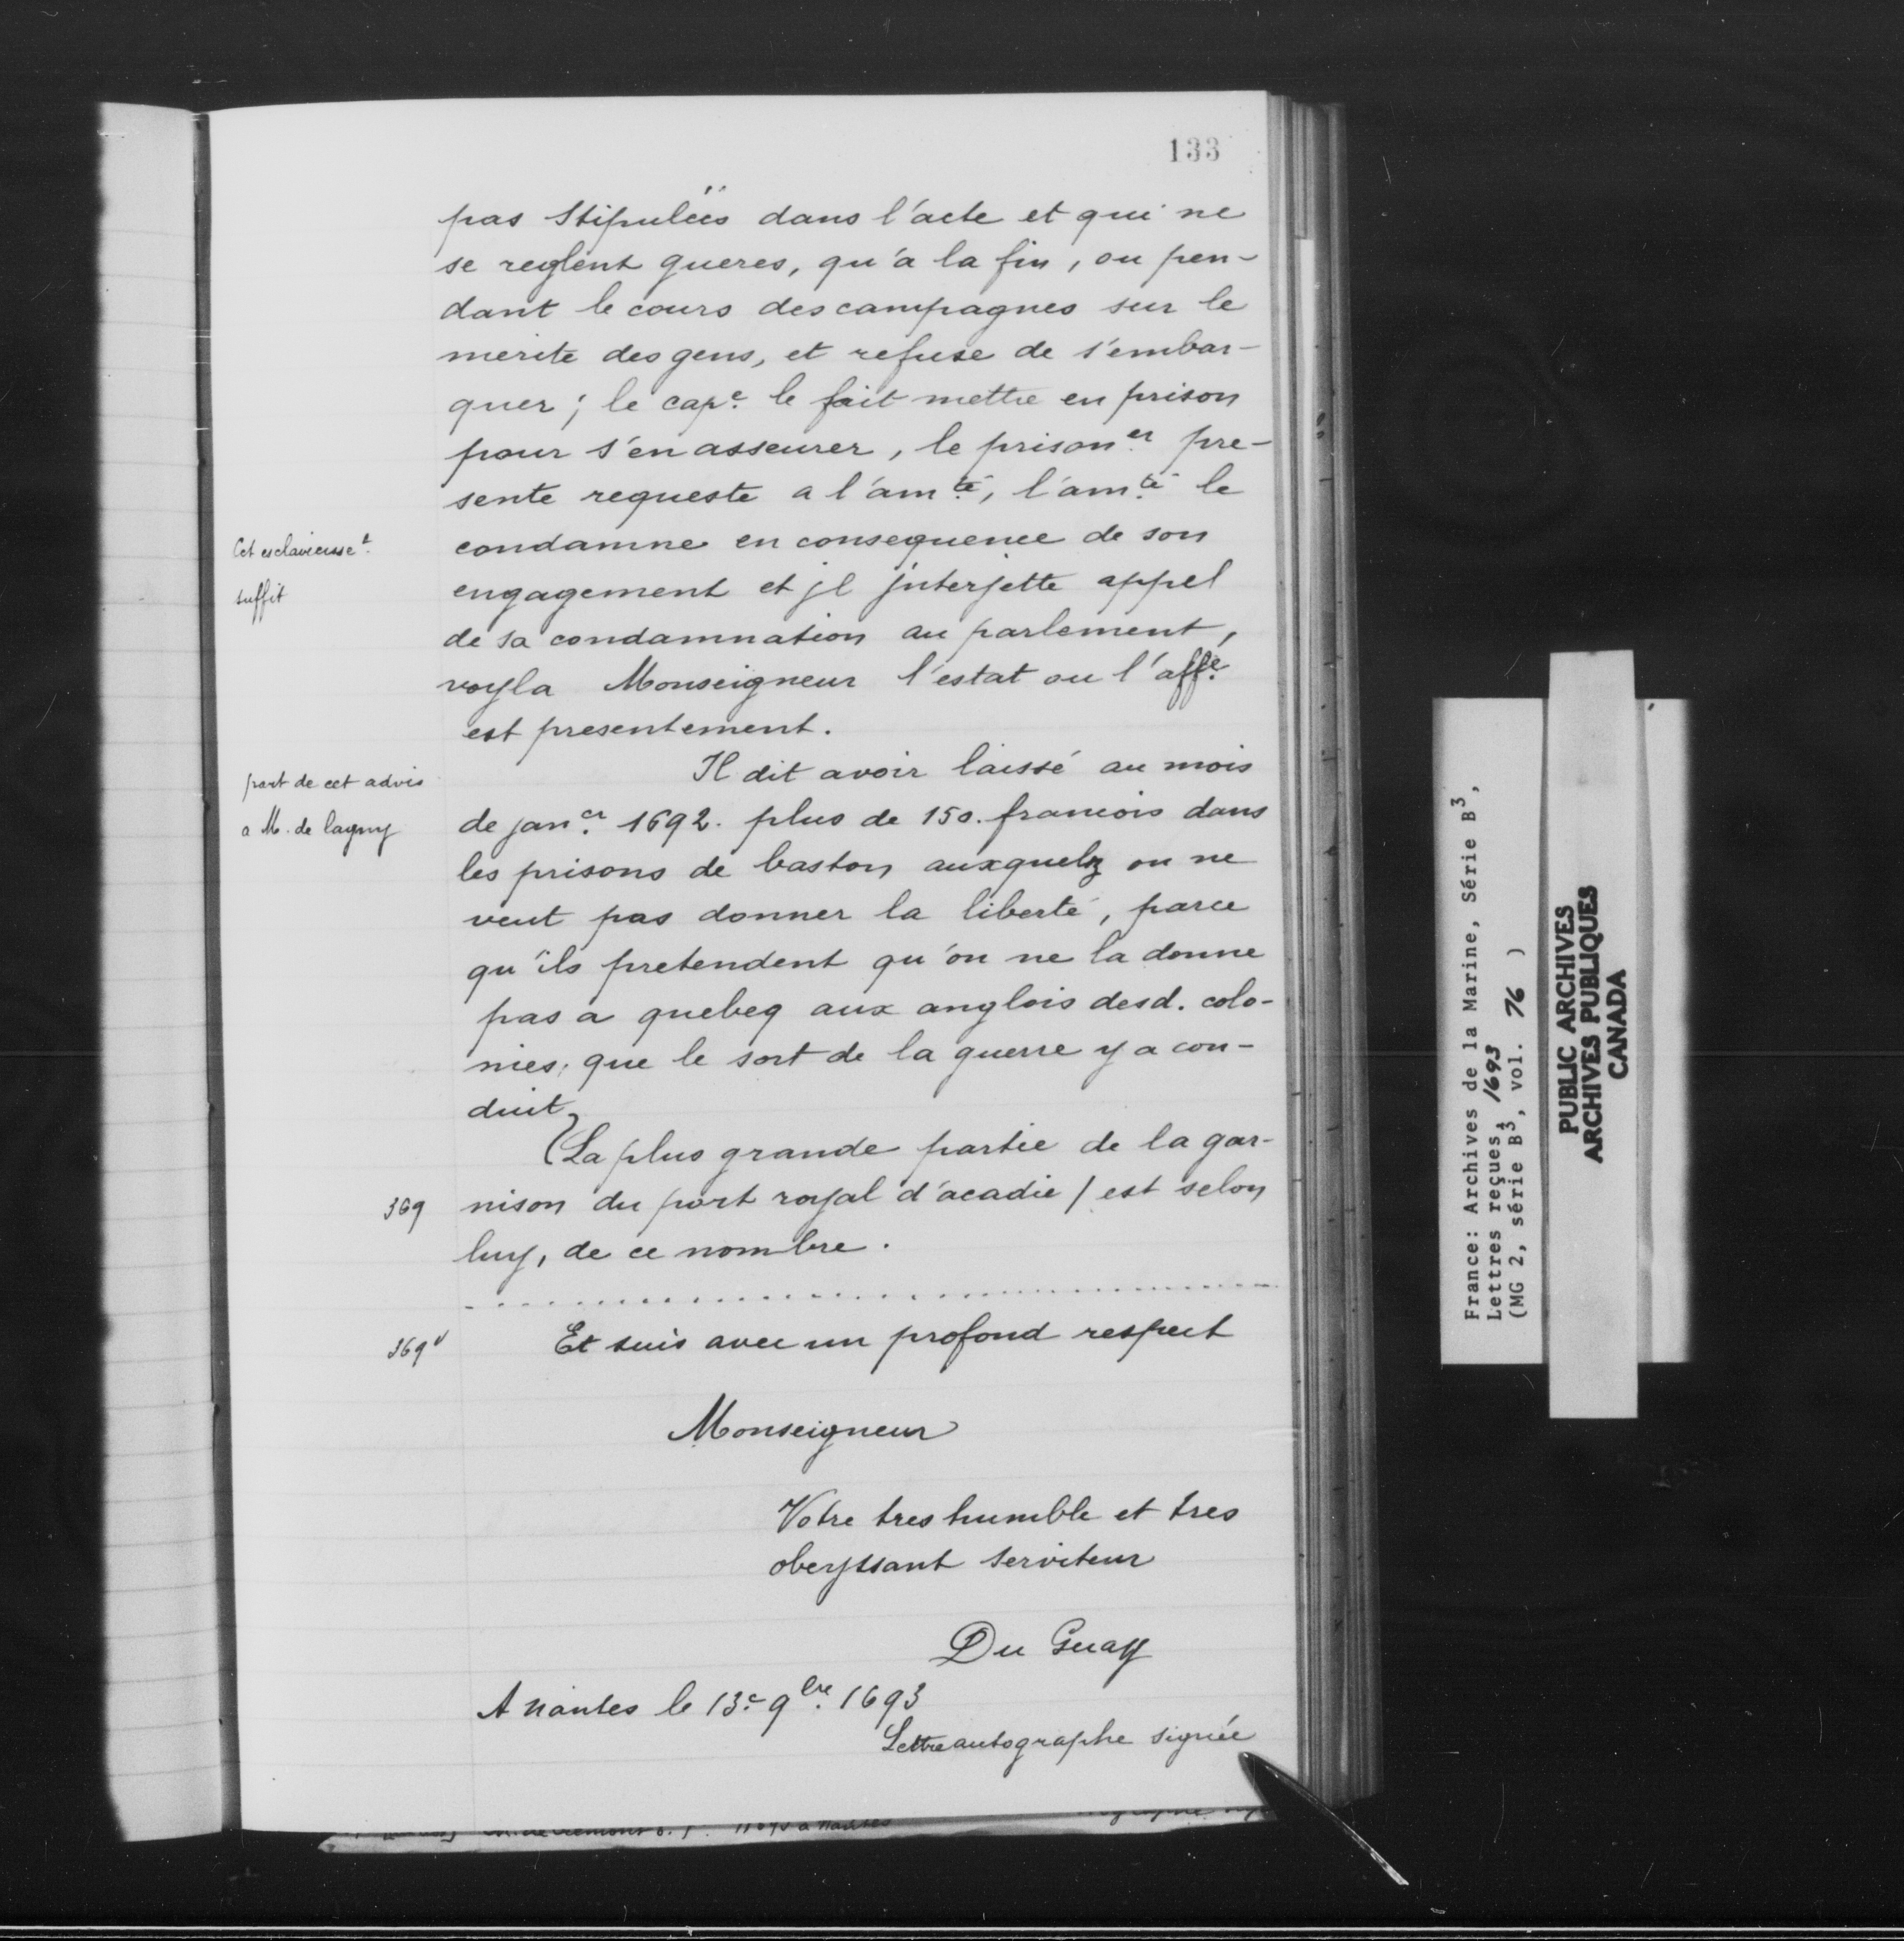 133
pas Stipuleés dans l'acte et qui ne
se reglent gueres, qu'a la fin, ou pen-
dant le cours des campagnes sur le
merite des gens, et refuse de s'embar-
quer; le cap.e le fait mettre en prison
pour s'en asseurer, le prison.er pre-
sente requeste a l'am.té, l'am.té le
Cet esclaircisse.t
condamne en consequence de son
suffit
engagement et jl jnterjette appel
de sa condamnation au parlement,
voyla Monseigneur l'estat ou l'aff.e
est presentement.
Il dit avoir laissé au mois
part de cet advis
a M. de lagny
de jan.er 1692. plus de 150. francois dans
les prisons de baston auxquelz on ne
veut pas donner la liberté, parce
qu'ils pretendent qu'on ne la donne
pas a quebeq aux anglois desd. colo-
nies, que le sort de la guerre y a con-
duit,
(La plus grande partie de la gar-
369 nison du port royal d'acadie / est selon
luy, de ce nombre.
369v Et suis avec un profond respect
Monseigneur
Votre tres humble et tres
obeyssant serviteur
Du Guay
A nantes le 13.e 9.bre 1693
Lettre autographe signée
France: Archives de la Marine, Série B3,
Lettres reçues, 1693
(MG 2, série B3, vol. 76 )
PUBLIC ARCHIVES
ARCHIVES PUBLIQUES
CANADA